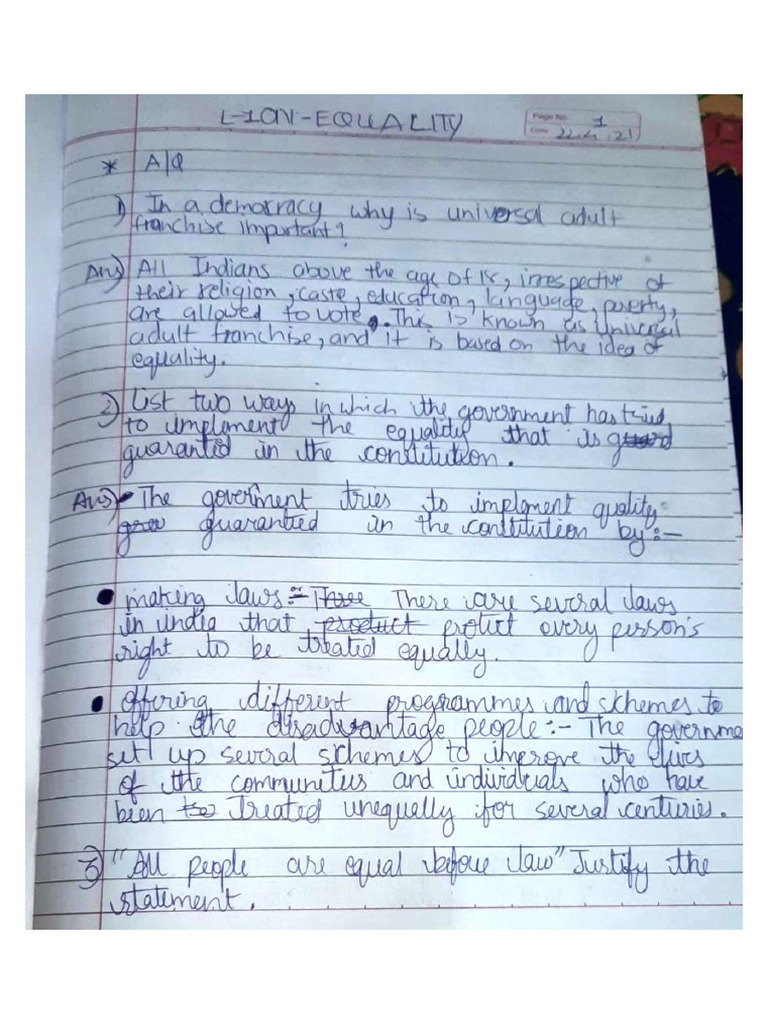 L-1 ON:-EQUALITY
Page No. 1
Date 22.4.21
* A/Q
1) In a democracy why is universal adult
franchise important?
Ans) All Indians above the age of 18, irrespective of
their religion, caste, education, language, poverty,
are allowed to vote. This is known as Universal
adult franchise, and it is based on the idea of
equality.
2) List two ways in which the government has tried
to implement the equality that is
guaranted in the constitution.
Ans) The goverment tries to implement quality
guarantied in the constitution by:-
• making laws:- Three There are several laws
in india that product protict every person's
right to be treated equally.
• offering different programmes and schemes to
help the disadvantage people:- The governme
set up several schemes to improve the lives
of the communities and individuals who have
been treated unequally for several centuries.
3) "All people are equal before law" Justify the
statement.